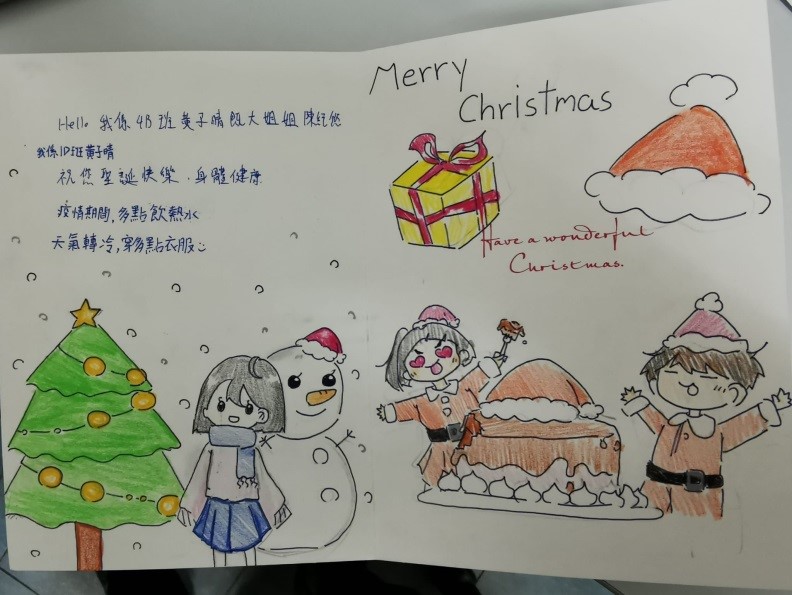 Hello 我係 4B 班 黃子晴 既大姐姐 陳
我係1D班黃子晴
祝您聖誕快樂、身體健康
疫情期間,多點飲熱水
天氣轉冷,穿多點衣服
Merry
Christmas
Have a wonderful
Christmas.